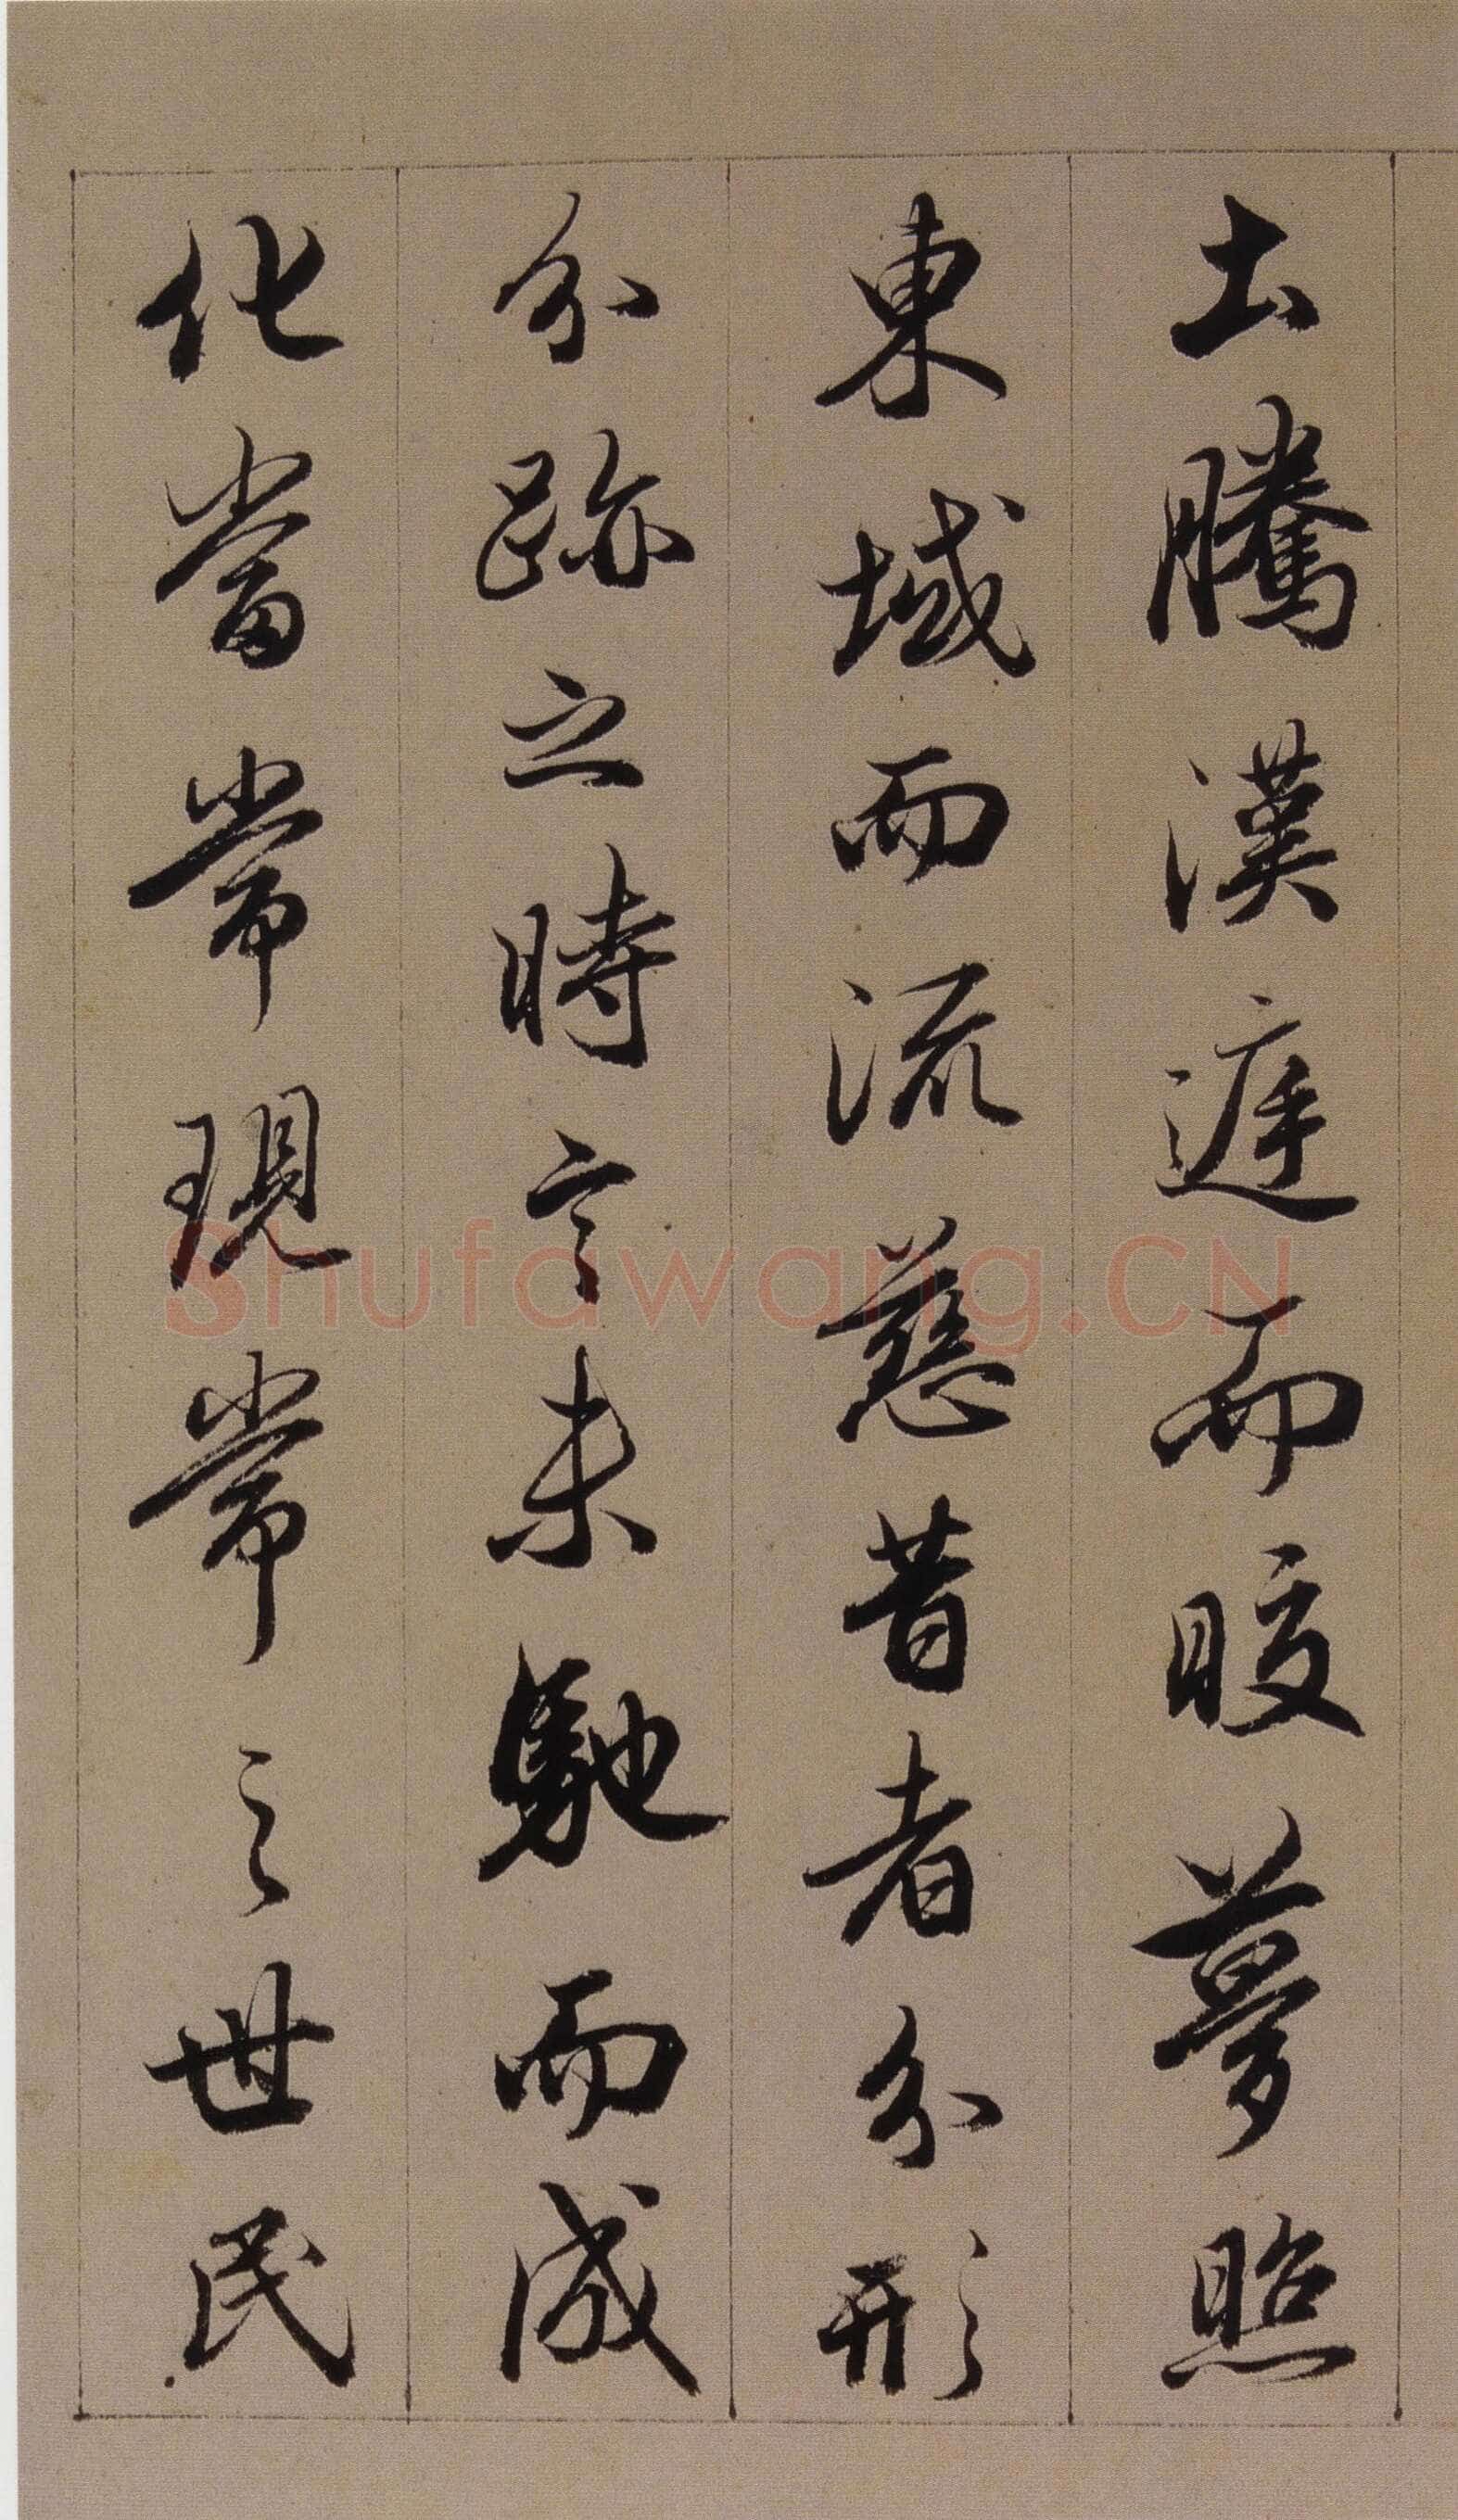 土騰漢遅而晈夢照
東域而流慈昔者分形
分跡之時言未馳而成
化當常現常之世民
Shufawang.CN